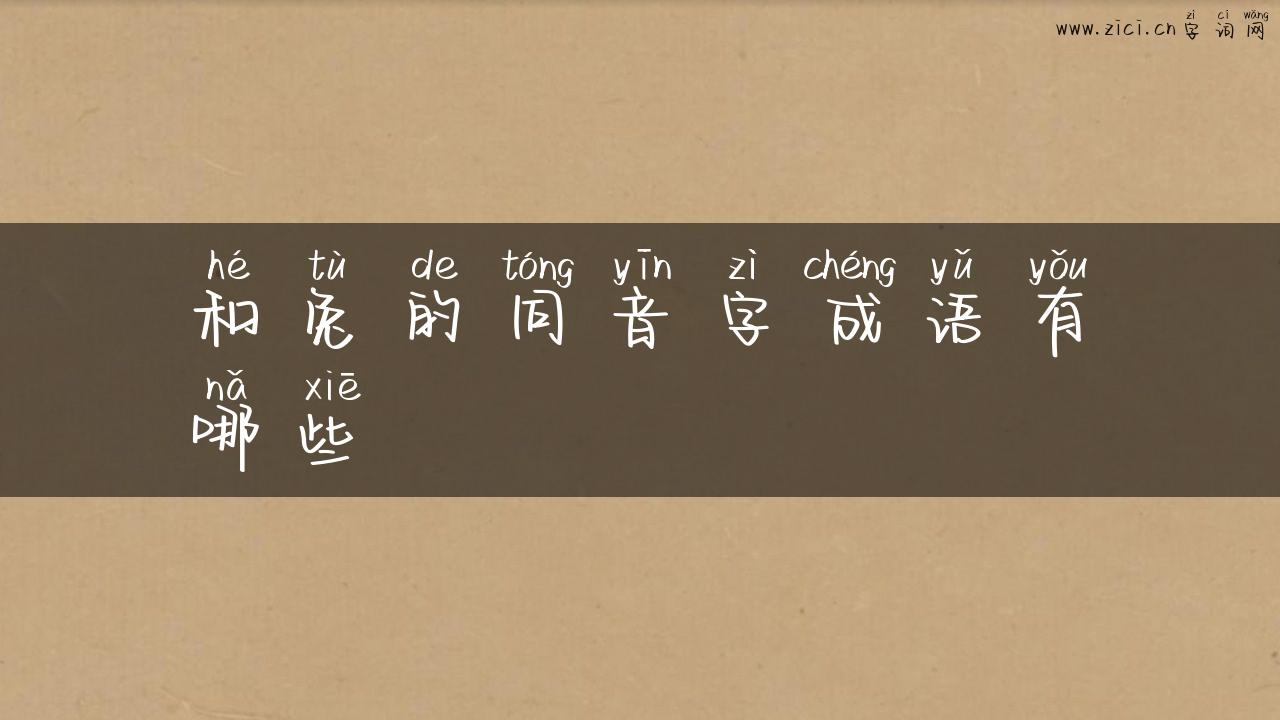 zì cí wǎng
www.zici.cn 字词网
hé tù de tóng yīn zì chéng yǔ yǒu
和兔的同音字成语有
nǎ xiē
哪些